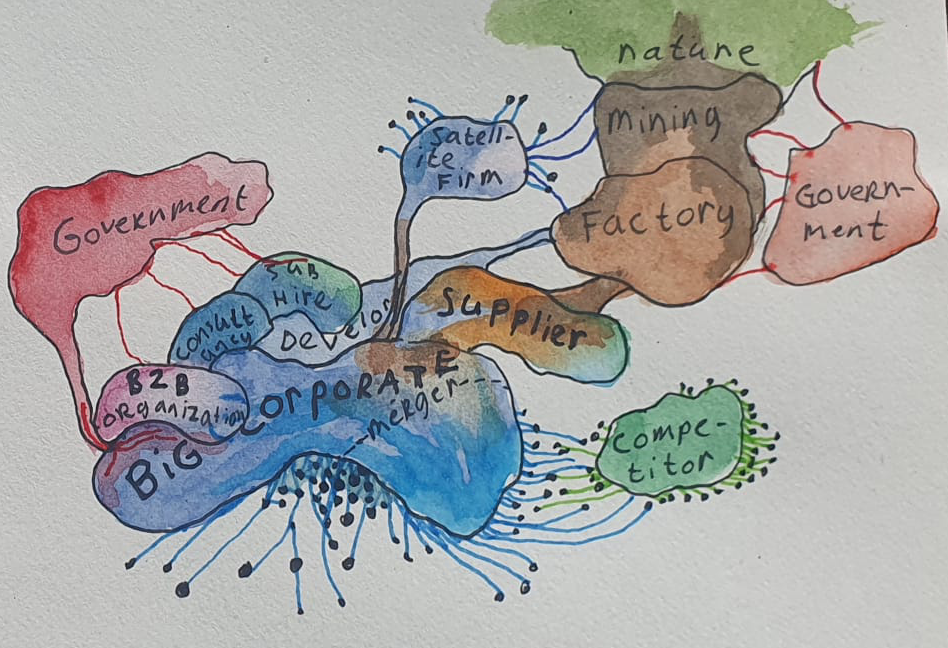 nature
mining
Satell-
ite
Firm
Government
Govern-
ment
Factory
SUB
Hire
Consult
ancy
Develop
Supplier
B2B
organization
BiG CORPORATE
-merger---
Compe-
titor